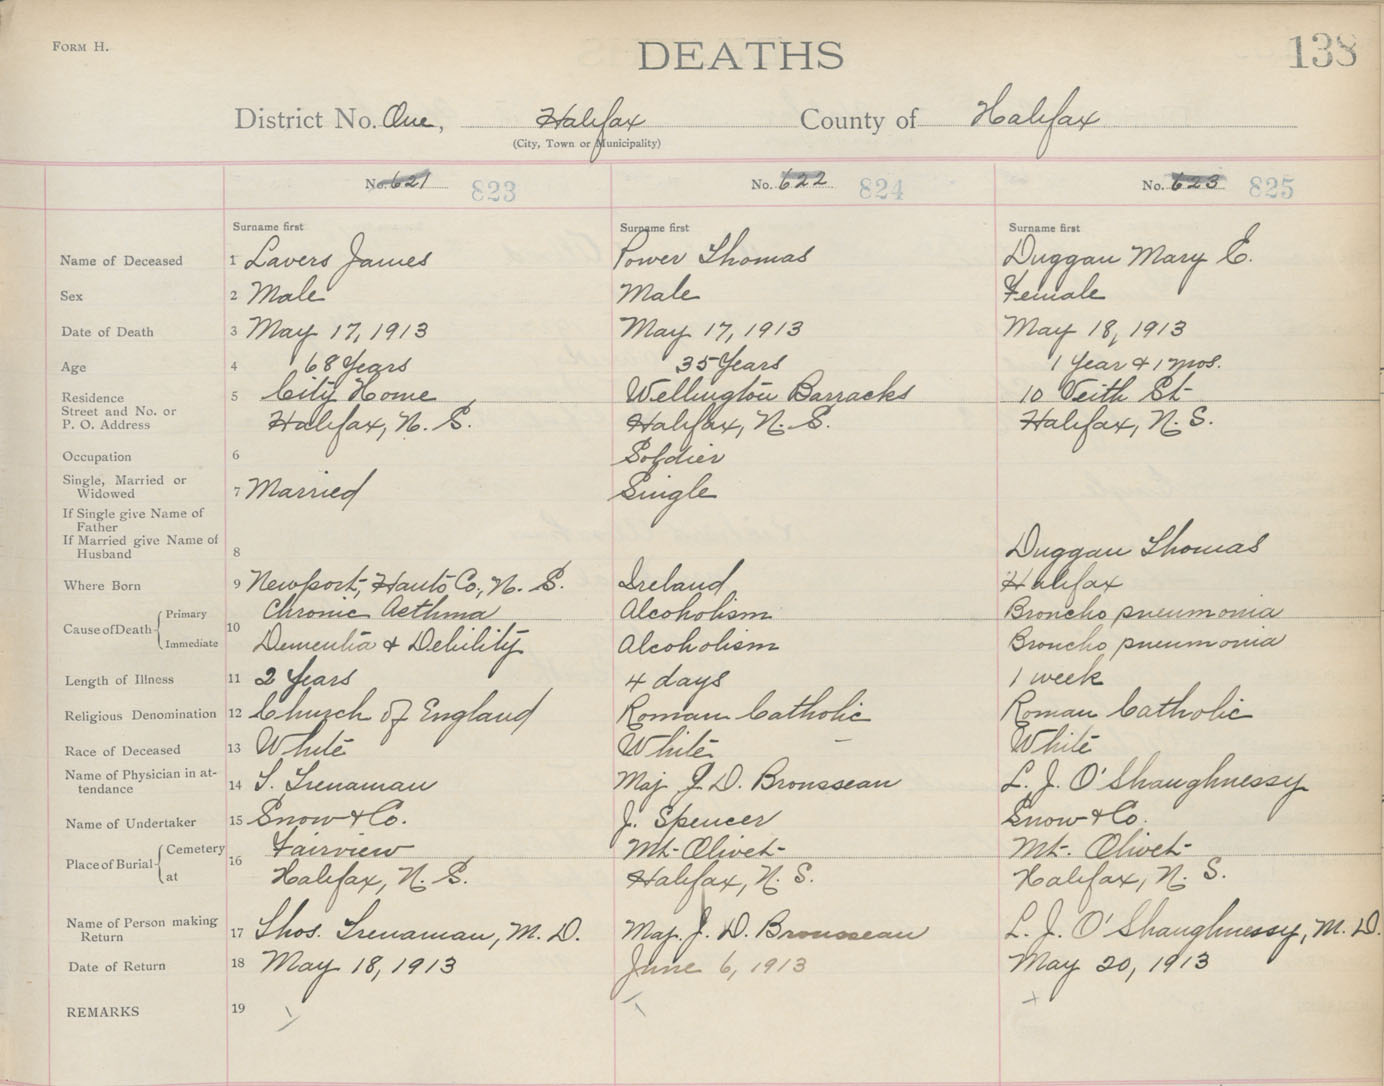 FORM H.
DEATHS
138
District No. One, Halifax County of Halifax
(City, Town or Municipality)
No. 621 823 No. 622 824 No. 623 825
Surname first Surname first Surname first
Name of Deceased 1 Lavers James Power Thomas Duggan Mary E.
Sex 2 Male Male Female
Date of Death 3 May 17, 1913 May 17, 1913 May 18, 1913
Age 4 68 Years 35 Years 1 Year & 1 mos.
Residence 5 City Home Wellington Barracks 10 Veith St
Street and No. or
P. O. Address Halifax, N. S. Halifax, N. S. Halifax, N. S.
Occupation 6 Soldier
Single, Married or
Widowed 7 Married Single
If Single give Name of
Father
If Married give Name of
Husband 8 Duggan Thomas
Where Born 9 Newport, Hants Co., N. S. Ireland Halifax
Cause of Death Primary 10 Chronic Asthma Alcoholism Broncho pneumonia
Immediate Dementia & Debility Alcoholism Broncho pneumonia
Length of Illness 11 2 Years 4 days 1 week
Religious Denomination 12 Church of England Roman Catholic Roman Catholic
Race of Deceased 13 White White White
Name of Physician in at-
tendance 14 T. Trenaman Maj J. D. Brousseau L. J. O'Shaughnessy
Name of Undertaker 15 Snow & Co. J. Spencer Snow & Co.
Place of Burial Cemetery 16 Fairview Mt. Olivet Mt. Olivet
at Halifax, N. S. Halifax, N. S. Halifax, N. S.
Name of Person making
Return 17 Thos. Trenaman, M. D. Maj. J. D. Brousseau L. J. O'Shaughnessy, M. D.
Date of Return 18 May 18, 1913 June 6, 1913 May 20, 1913
REMARKS 19